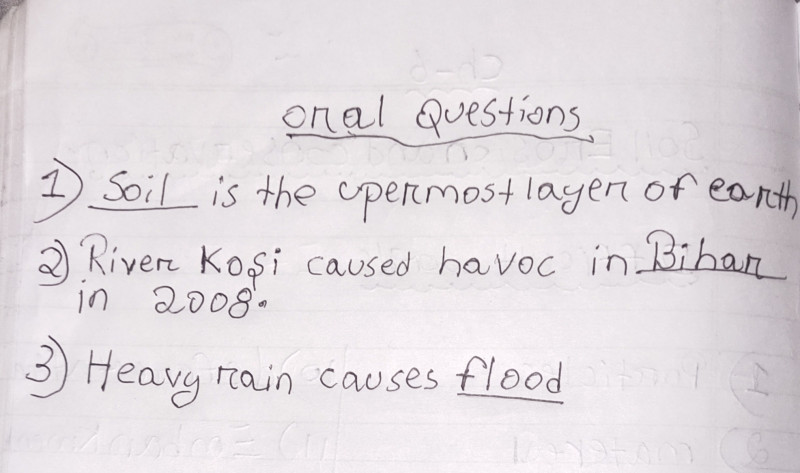 oral Questions
1) Soil is the upermost layer of earth
2) River Kosi caused havoc in Bihar
in 2008.
3) Heavy rain causes flood